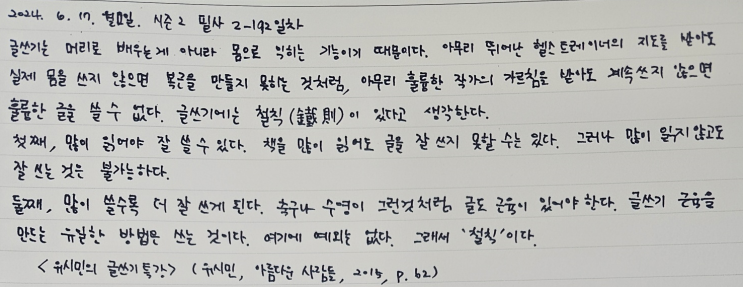 2024. 6. 17. 월요일. 시즌 2 필사 2-192일차
글쓰기는 머리로 배우는게 아니라 몸으로 익히는 기능이기 때문이다. 아무리 뛰어난 헬스트레이너의 지도를 받아도
실제 몸을 쓰지 않으면 복근을 만들지 못하는 것처럼, 아무리 훌륭한 작가의 가르침을 받아도 계속 쓰지 않으면
훌륭한 글을 쓸 수 없다. 글쓰기에는 철칙(金鐵則)이 있다고 생각한다.
첫째, 많이 읽어야 잘 쓸 수 있다. 책을 많이 읽어도 글을 잘 쓰지 못할 수는 있다. 그러나 많이 읽지 않고도
잘 쓰는 것은 불가능하다.
둘째, 많이 쓸수록 더 잘 쓰게 된다. 축구나 수영이 그런것처럼 글도 근육이 있어야 한다. 글쓰기 근육을
만드는 유일한 방법은 쓰는 것이다. 여기에 예외는 없다. 그래서 '철칙'이다.
<유시민의 글쓰기 특강> (유시민, 아름다운 사람들, 2015, p.62)